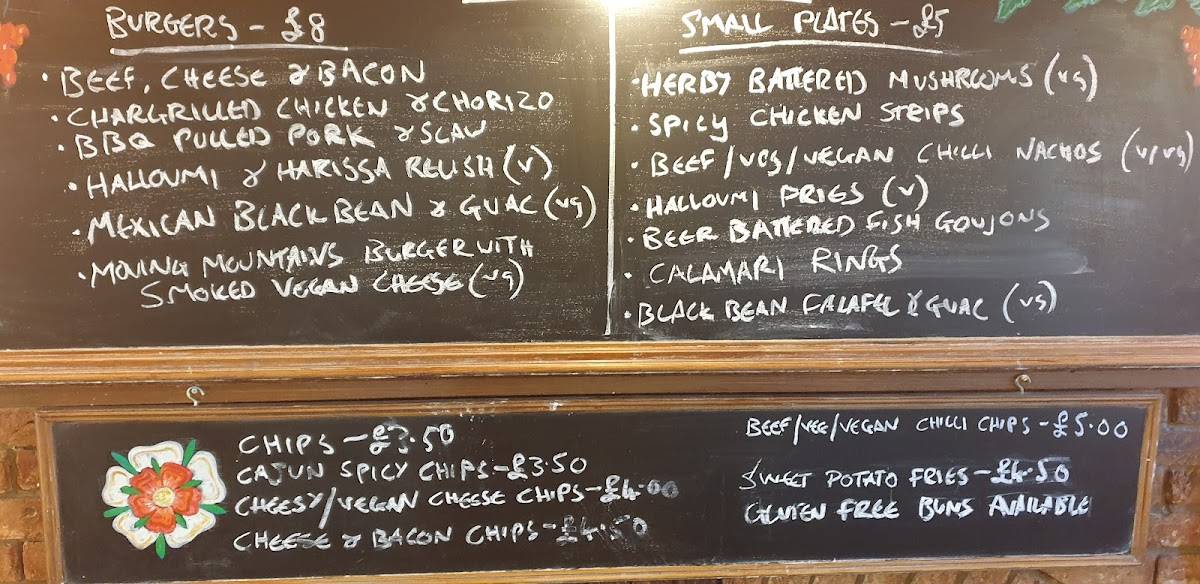 BURGERS - £8
• BEEF, CHEESE & BACON
• CHARGRILLED CHICKEN & CHORIZO
• BBQ PULLED PORK & SLAW
• HALLOUMI & HARISSA RELISH (V)
• MEXICAN BLACK BEAN & GUAC (vg)
• MOVING MOUNTAINS BURGER WITH
SMOKED VEGAN CHEESE (vg)
SMALL PLATES - £5
• HERBY BATTERED MUSHROOMS (vg)
• SPICY CHICKEN STRIPS
• BEEF/VEG/VEGAN CHILLI NACHOS (v/vg)
• HALLOUMI FRIES (V)
• BEER BATTERED FISH GOUJONS
• CALAMARI RINGS
• BLACK BEAN FALAFEL & GUAC (vg)
CHIPS - £3.50
CAJUN SPICY CHIPS - £3.50
CHEESY/VEGAN CHEESE CHIPS - £4.00
CHEESE & BACON CHIPS - £4.50
BEEF/VEG/VEGAN CHILLI CHIPS - £5.00
SWEET POTATO FRIES - £4.50
GLUTEN FREE BUNS AVAILABLE